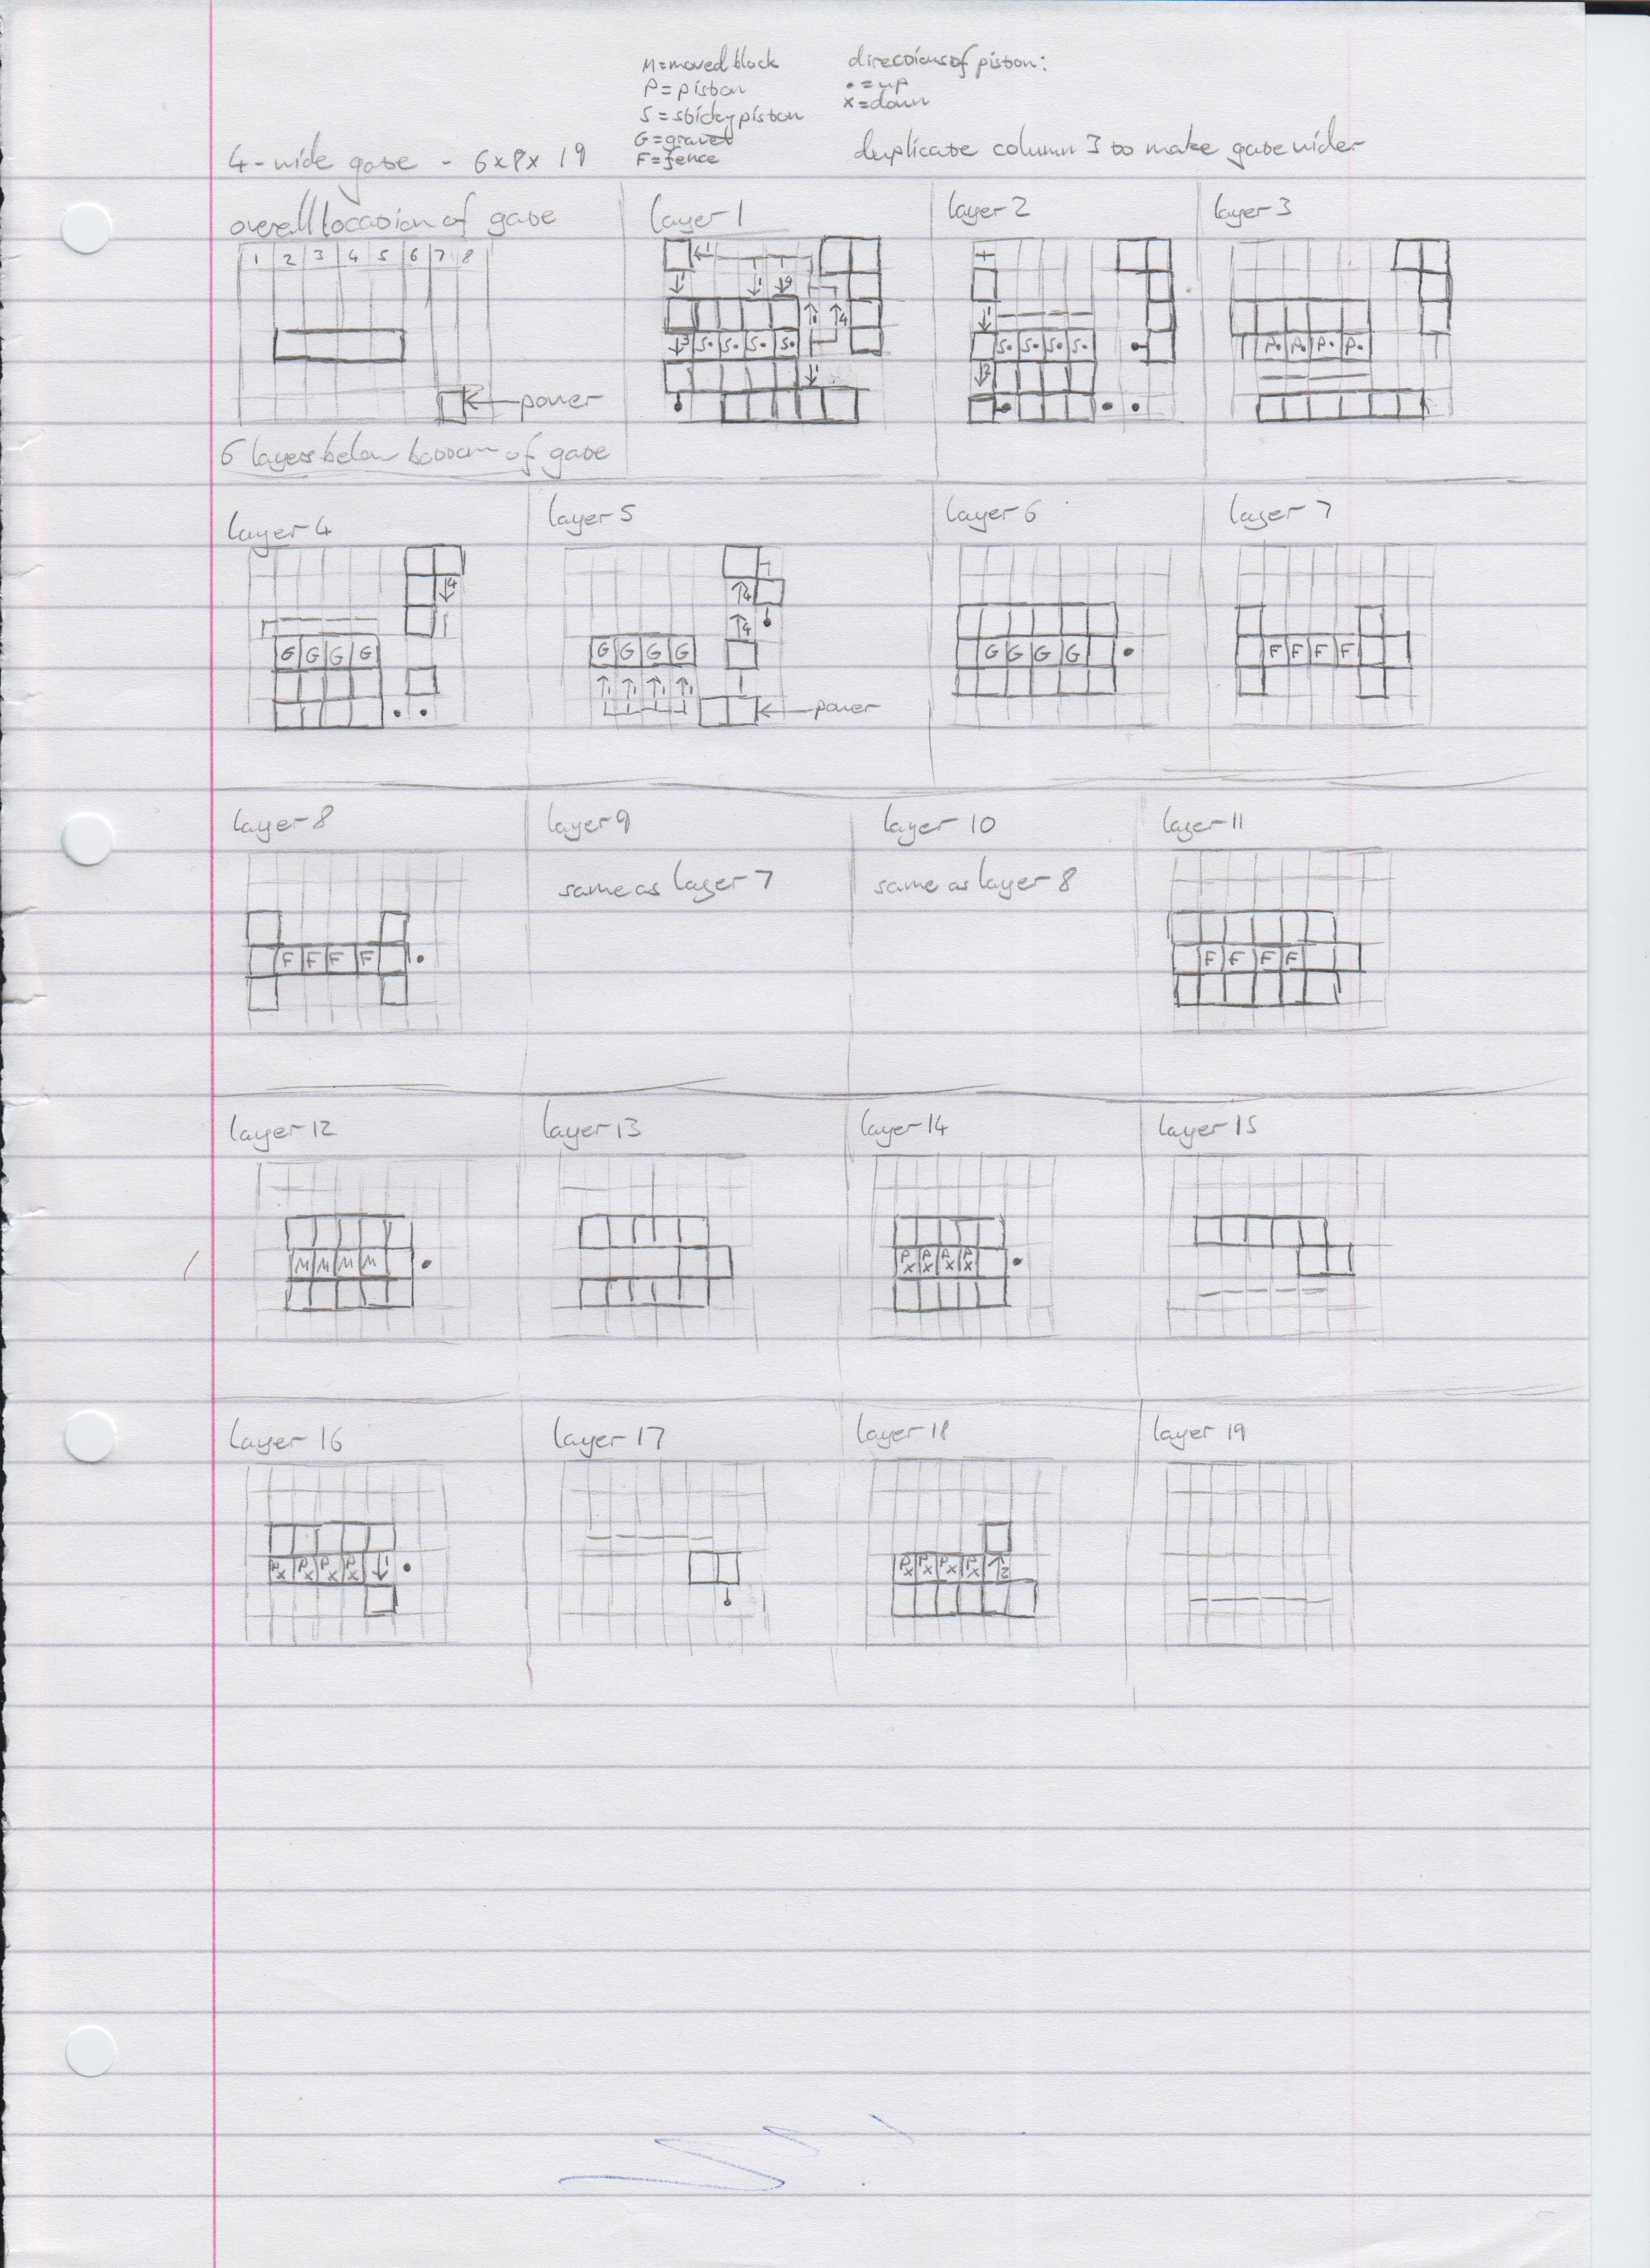 M=moved block
P=piston
S=sticky piston
G=gravel
F=fence
directions of piston:
•=up
x=down
4-wide gate - 6x8x19
duplicate column 3 to make gate wider
overall location of gate
1 2 3 4 5 6 7 8
power
6 layers below bottom of gate
layer 1
1 1 1 3
S• S• S• S•
4
1
layer 2
1
S• S• S• S•
2
layer 3
P• P• P• P•
layer 4
4
G G G G
layer 5
4
4
G G G G
1 1 1 1
power
layer 6
G G G G
layer 7
F F F F
layer 8
F F F F
layer 9
same as layer 7
layer 10
same as layer 8
layer 11
F F F F
layer 12
M M M M
layer 13
layer 14
P P P P
x x x x
layer 15
layer 16
P P P P
x x x x
1
layer 17
layer 18
P P P P
x x x x
2
layer 19